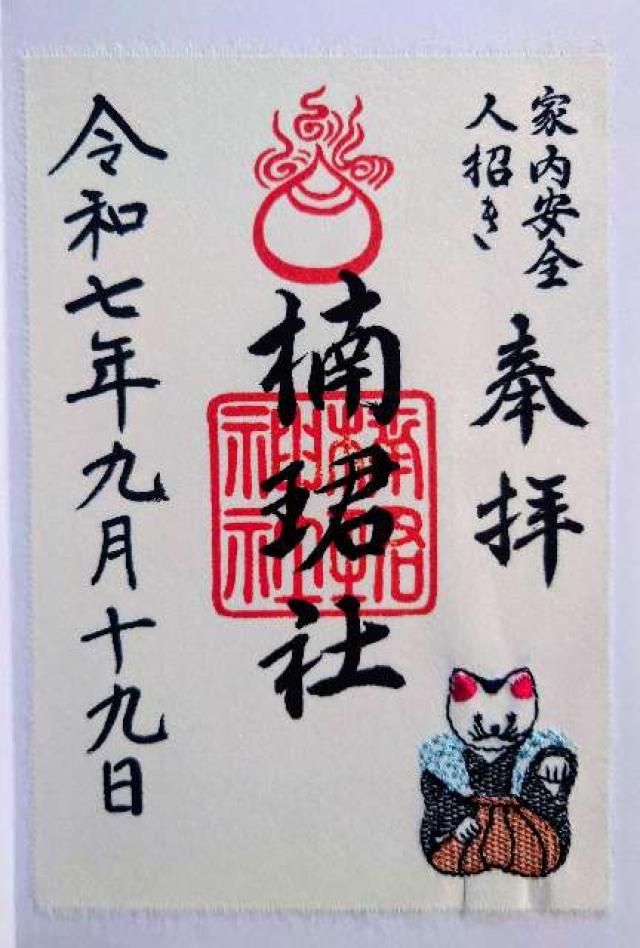 家内安全
人招き
奉拝
楠珺社
令和七年九月十九日